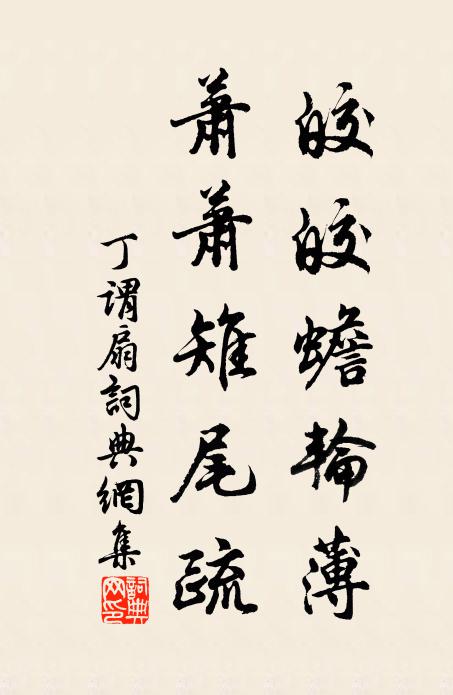 皎皎蟾輪薄
蕭蕭雉尾疏
丁謂扇詞典網集
詞典網印